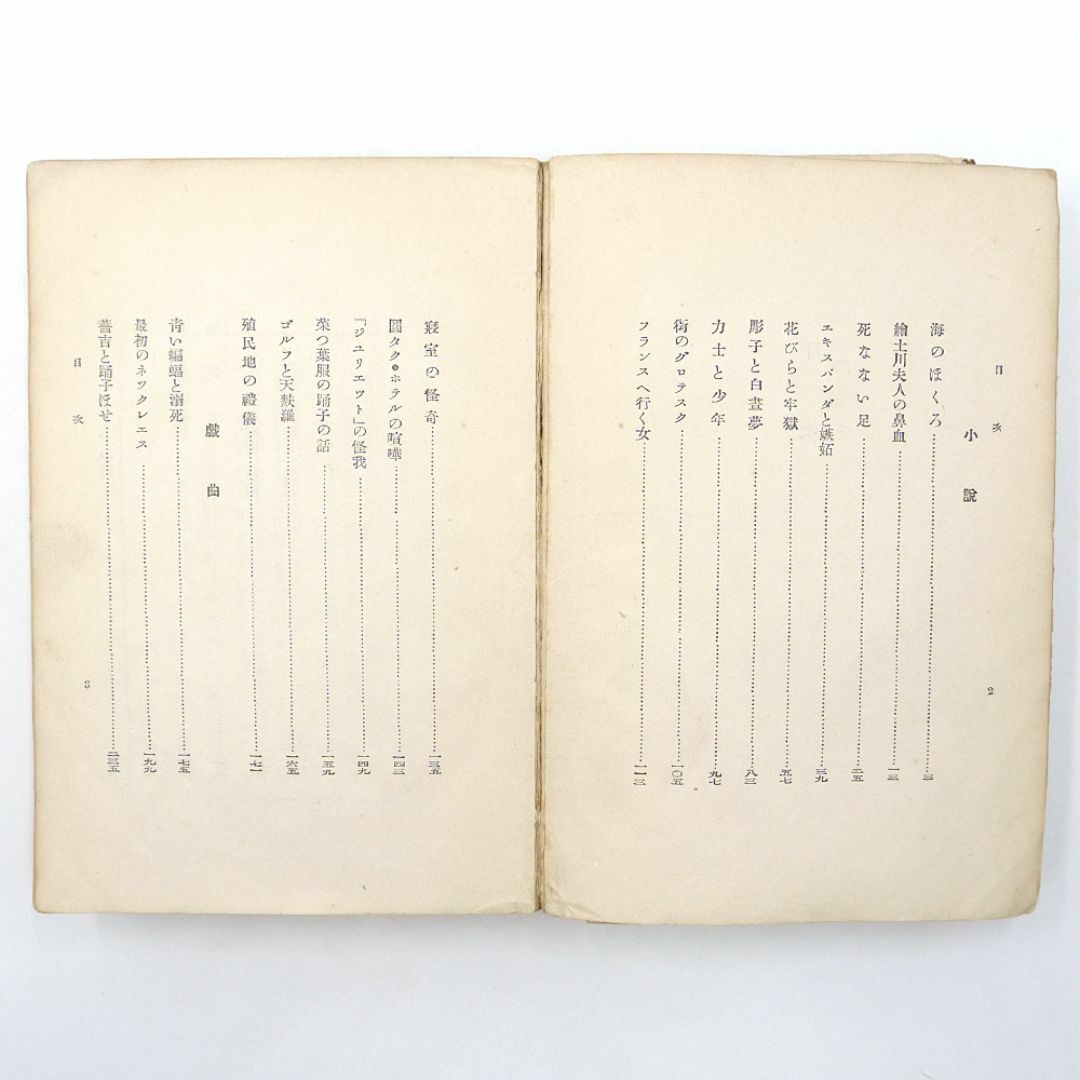 目次
小說
海のほくろ……三
繪土川夫人の鼻血……一三
死なない足……二五
エキスパンダと嫉妬……三九
花びらと牢獄……五七
彫子と白晝夢……八三
力士と少年……九七
街のグロテスク……一〇五
フランスへ行く女……一一三
2
寢室の怪奇……一三五
圓タク・ホテルの喧嘩……一四三
「ジユリエツト」の怪我……一四九
菜つ葉服の踊子の話……一五九
ゴルフと天麩羅……一六五
殖民地の禮儀……一七一
戲曲
青い蝙蝠と溺死……一七五
最初のネツクレエス……一九九
薔吉と踊子ほせ……二三五
目次
3